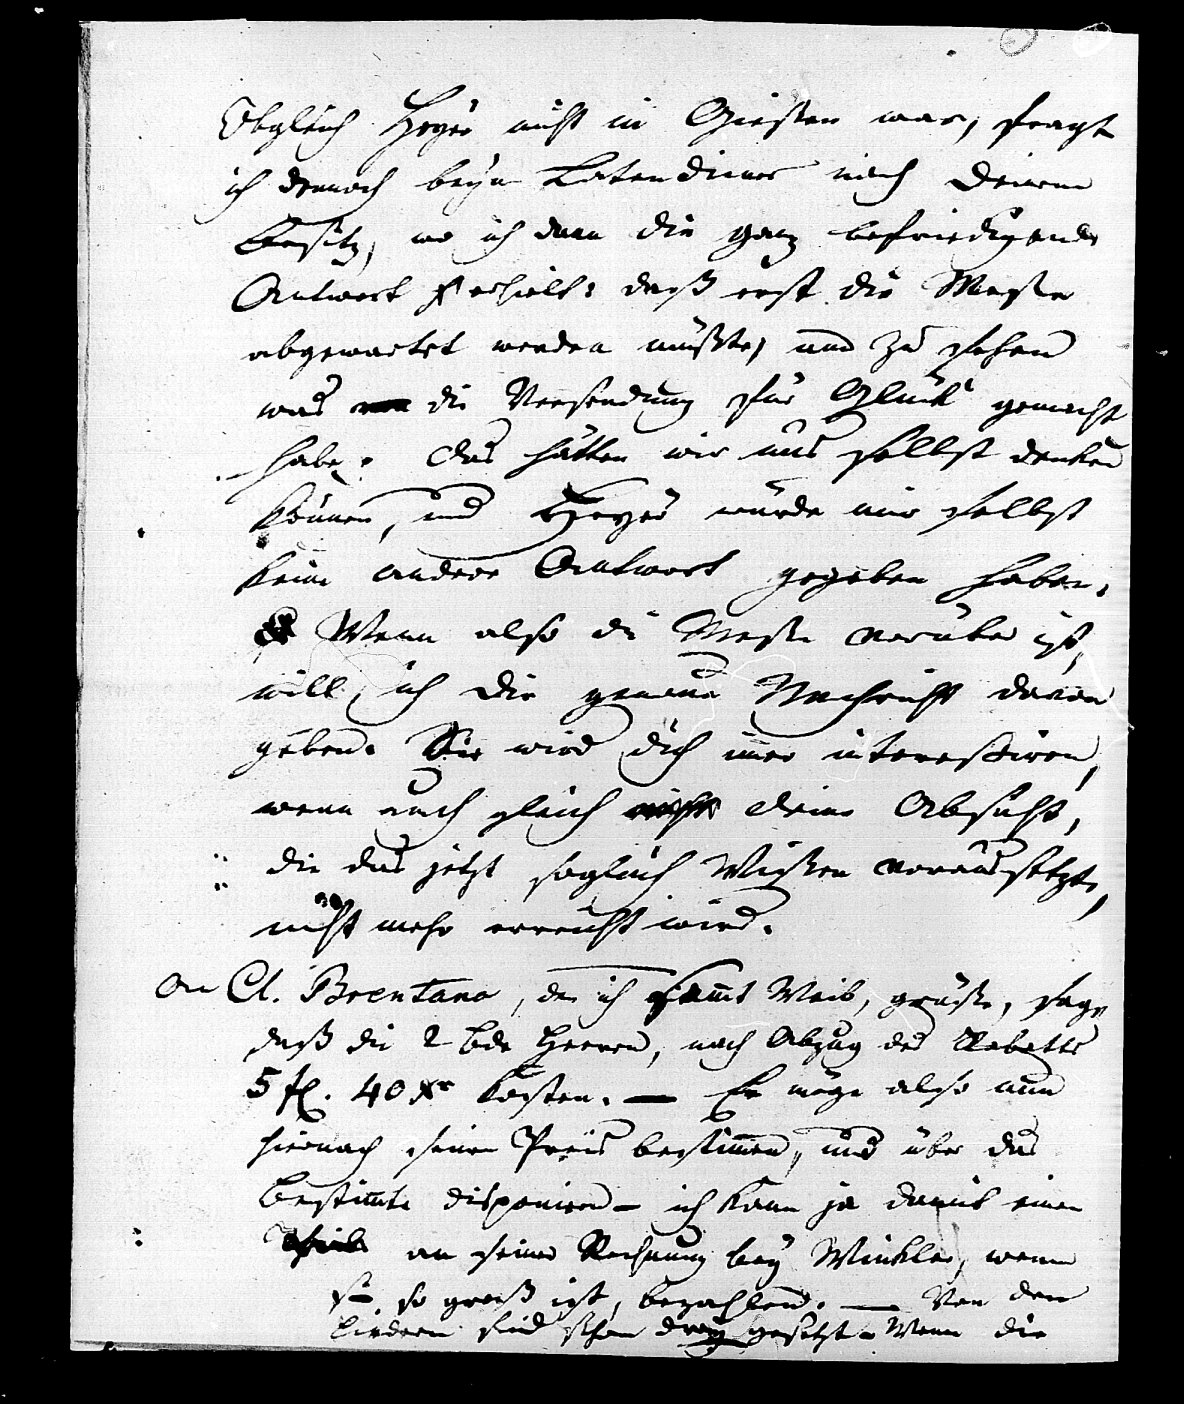 Obgleich Heyer nicht in Giessen war, fragt
ich dennoch beym Ladendiener nach Deinem
Besitz, wo ich dann die ganz befriedigende
Antwort erhielt: daß erst die Messe
abgewartet werden müßte, und zu sehen
was die Versendung für Glück gemacht
habe. Das hätten wir uns selbst denken
können, und Heyer würde mir selbst
keine andere Antwort gegeben haben.
Wenn also die Messe vorüber ist,
will ich Dir genaue Nachricht davon
geben. Sie wird Dich immer interessiren,
wenn auch gleich Deine Absicht,
die das jetzt sogleich Wissen voraussetzt,
nicht mehr erreicht wird.
An Cl. Brentano, den ich sammt Weib, grüße, sage
daß die 2 Bde Herren, nach Abzug des Rabatts
5 fl. 40 Xr kosten. — Er möge also nun
hiernach seinen Preis bestimmen, und über das
bestimmte disponiren – ich kann ja damit einen
Theil an seiner Rechnung bey Winkler, wenn
sie so groß ist, bezahlen. — Von den
Liedern sind schon drey gesetzt – Wenn die